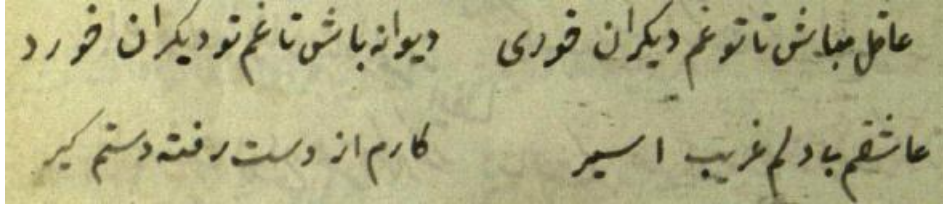 عاقل مباش تا تو غم دیکران خوری دیوانه باش تا غم تو دیکران خورد
عاشقم با دلم غریب اسیر کارم از دست رفته دستم کیر